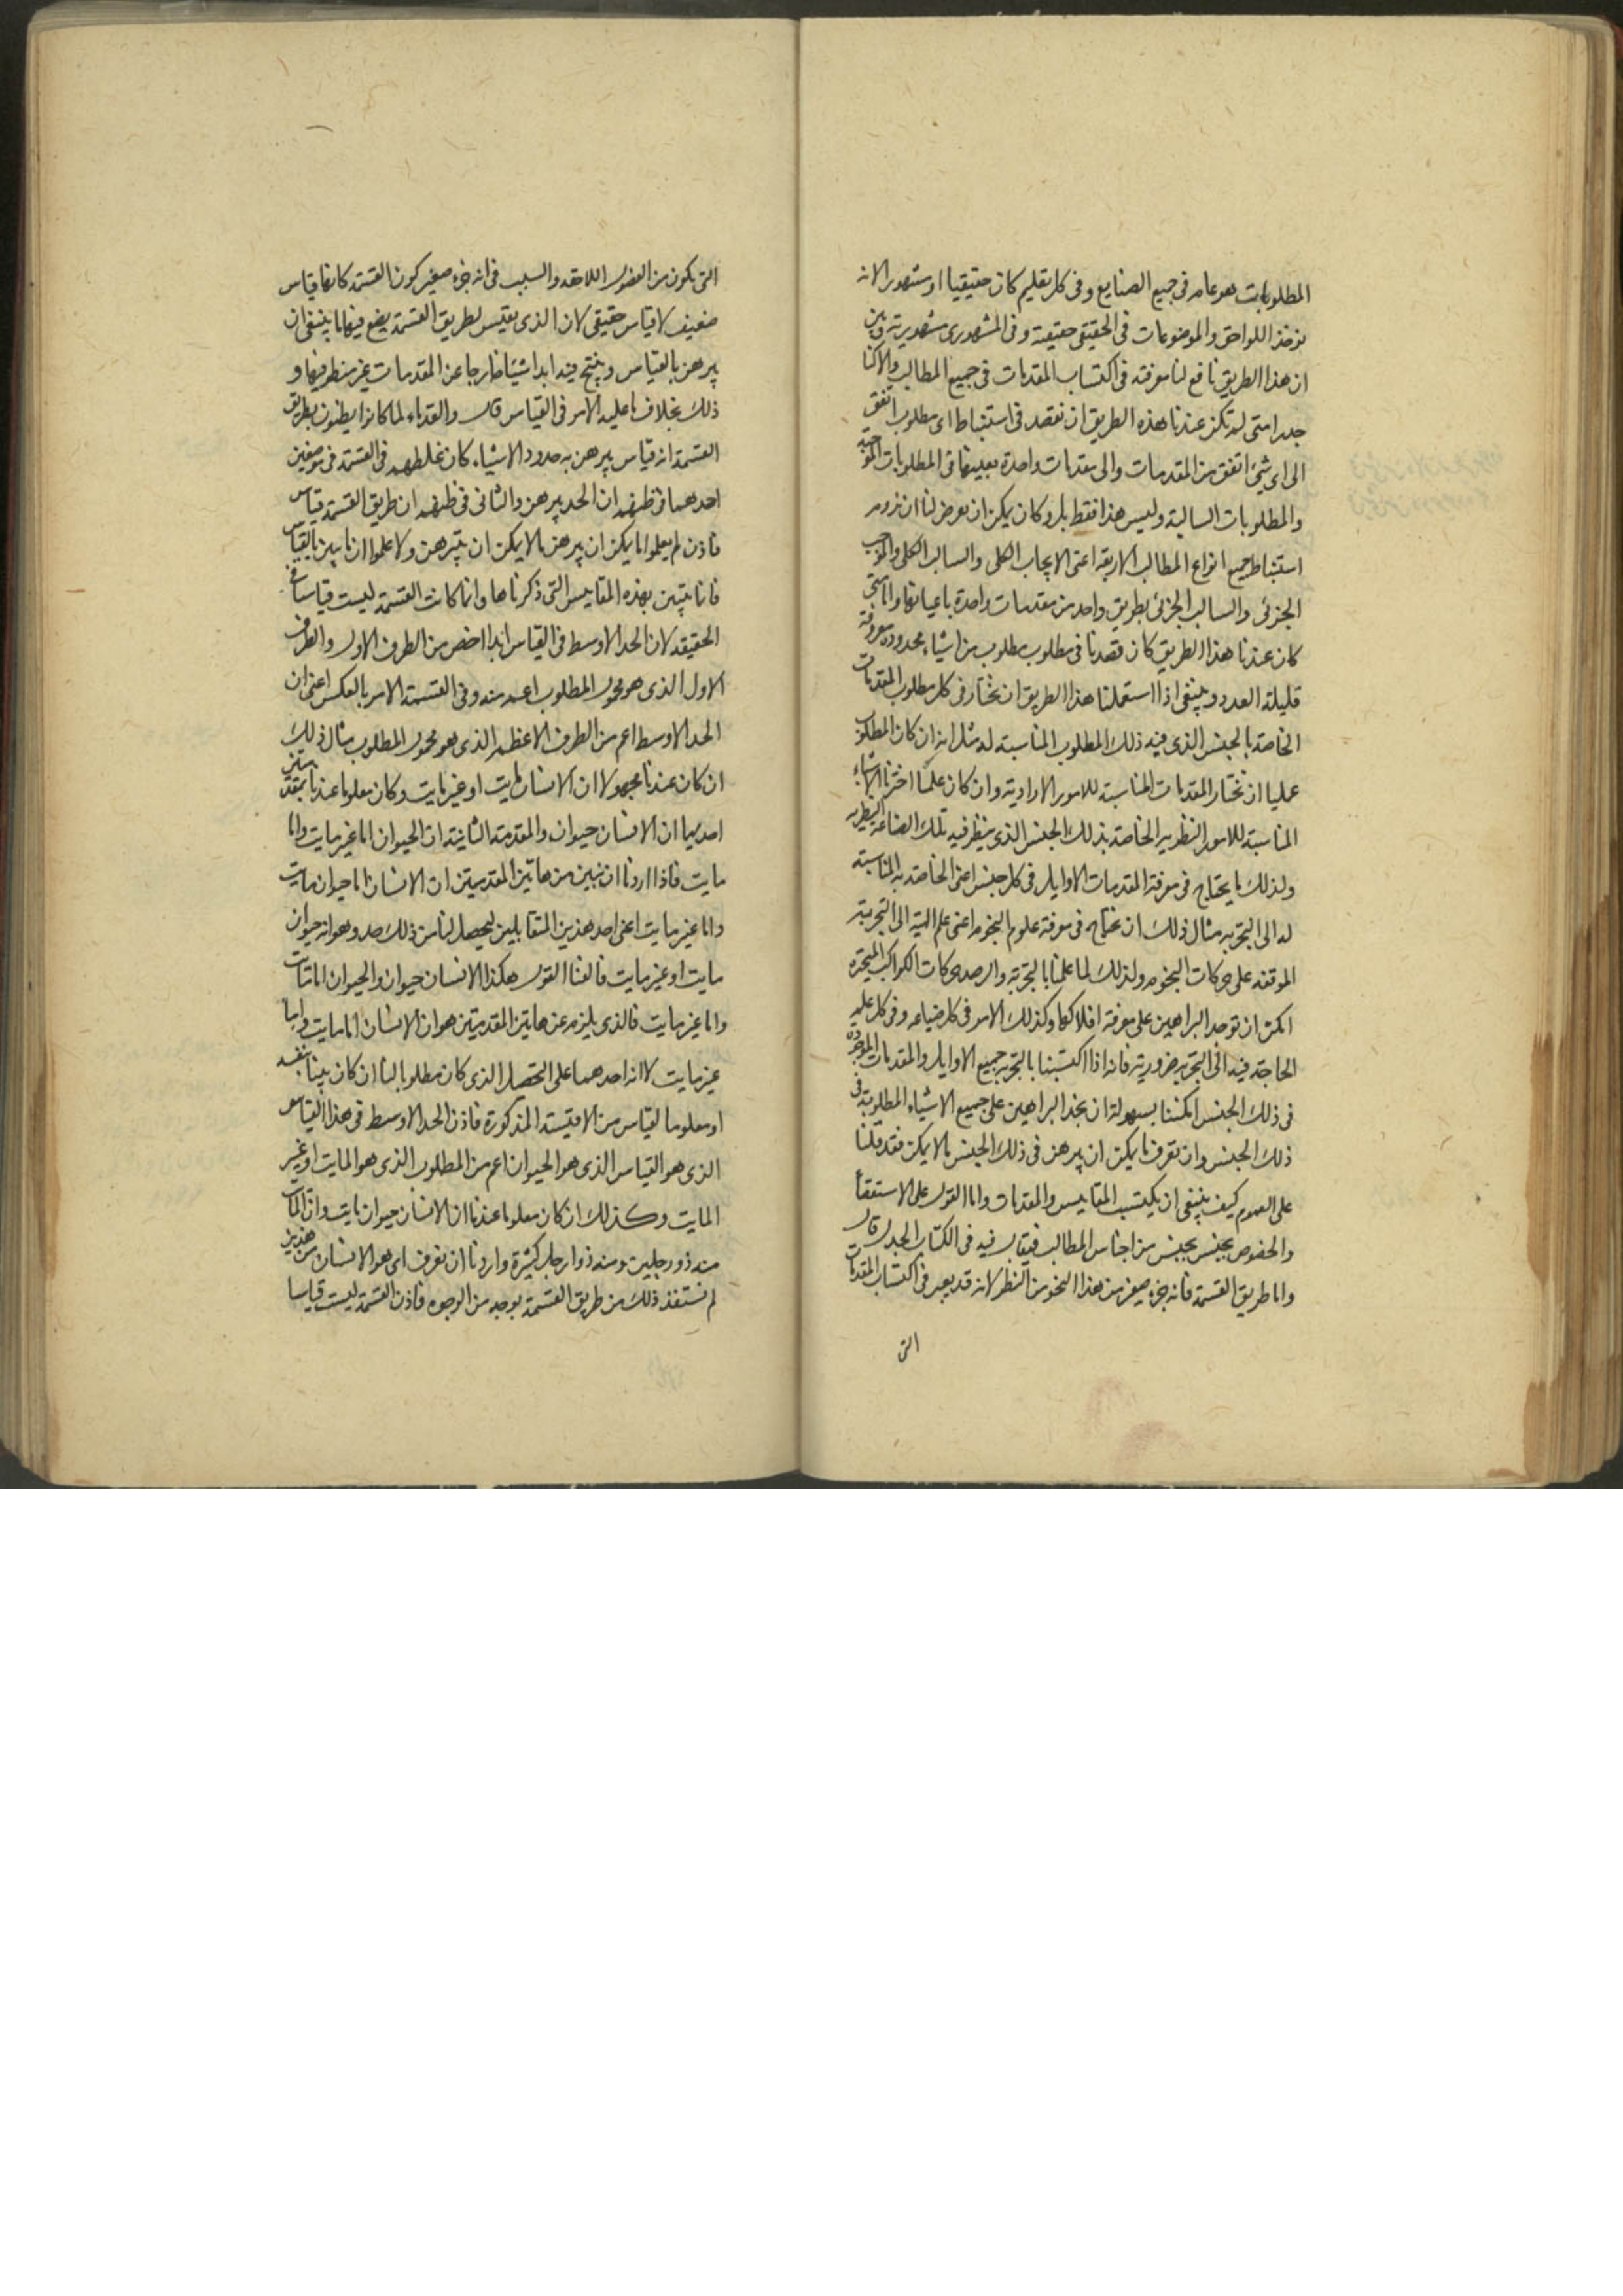 المطلوبات هو عام فى جميع الصنايع وفى كل تعليم كان حقيقيا او مشهورا لانه
يوخذ اللواحق والموضوعات فى الحقيقى حقيقية وفى المشهورى مشهورية وبين
ان هذا الطريق نافع لنا معرفته فى اكتساب المقدمات فى جميع المطالب والاكنا
جدرا متى لم تكن عندنا هذه الطريق ان نقصد فى استنباط اى مطلوب اتفق
الى اى شئ اتفق من المقدمات والى مقدمات واحدة بعينها فى المطلوبات الموجبة
والمطلوبات السالبة وليس هذا فقط بل وكان يمكن ان يعرض لنا ان نروم
استنباط جميع انواع المطالب الاربعة اعنى الايجاب الكلى والسالب الكلى والموجب
الجزئى والسالب الجزئى بطريق واحد من مقدمات واحدة باعيانها واما متى
كان عندنا هذا الطريق كان قصدنا فى مطلوب مطلوب من اشياء محدودة معروفة
قليلة العدد وينبغى اذا استعملنا هذا الطريق ان نختار فى كل مطلوب المقدمات
الخاصة بالجنس الذى فيه ذلك المطلوب المناسبة له مثل انه ان كان المطلوب
عمليا ان نختار المقدمات المناسبة للامور الارادية وان كان علميا اخترنا الاشياء
المناسبة للامور النظرية الخاصة بذلك الجنس الذى ينظر فيه تلك الصناعة النظرية
ولذلك ما يحتاج فى معرفة المقدمات الاوايل فى كل جنس اعنى الخاصة به المناسبة
له الى التجربه مثال ذلك ان نحتاج فى معرفة علوم النجوم اعنى علم الهية الى التجربة
الموقفه على حركات النجوم ولذلك لما علمنا بالتجربة والرصد حركات الكواكب المتحيره
امكن ان توجد البراهين على معرفة افلاكها وكذلك الامر فى كل صناعه وفى كل علم
الحاجة فيه الى التجربه ضرورية فانه اذا اكتسبنا بالتجربه جميع الاوايل والمقدمات الموجودة
فى ذلك الجنس امكننا بسهولة ان نجد البراهين على جميع الاشياء المطلوبة فى
ذلك الجنس وان نعرف ما يمكن ان يبرهن فى ذلك الجنس مما لا يمكن فقد قلنا
على العموم كيف ينبغى ان يكتسب المقاييس والمقدمات واما القول على الاستقصأ
والخصوص بجنس بجنس من اجناس المطالب فيقال فيه فى الكتاب الجدل قال
واما طريق القسمة فانه جزء صغير من هذا النحو من النظر لانه قد يعين فى اكتساب المقدمات
التى
التى يكون من الفصول اللاحقه والسبب فى انه جزء صغير كون القسمة كانها قياس
ضعيف لا قياس حقيقى لان الذى يقيس بطريق القسمة يضع فيها ما ينبغى ان
يبرهن بالقياس وينتج فيه ابدا شيئا خارجا عن المقدمات غير منطو فيها و
ذلك بخلاف ما عليه الامر فى القياس قال والقدماء لما كانوا يظنون بطريق
القسمة انه قياس يبرهن به حدود الاشياء كان غلطهم فى القسمة فى موضعين
احدهما فى ظنهم ان الحد يبرهن والثانى فى ظنهم ان طريق القسمة قياس
فاذن لم يعلموا ما يمكن ان يبرهن مما لا يمكن ان يتبرهن ولا علموا ان ما يبين بالقياس
فانما يتبين بهذه المقاييس التى ذكرناها وانما كانت القسمة ليست قياسا فى
الحقيقه لان الحد الاوسط فى القياس ابدا اخص من الطرف الاول والطرف
الاول الذى هو محمول المطلوب اعم منه وفى القسمة الامر بالعكس اعنى ان
الحد الاوسط اعم من الطرف الاعظم الذى هو محمول المطلوب مثال ذلك
ان كان عندنا مجهولا ان الانسان مايت او غير مايت وكان معلوما عندنا بمقدمتين
احديهما ان الانسان حيوان والمقدمة الثانية ان الحيوان اما غير مايت واما
مايت فاذا اردنا ان نبين من هاتين المقدمتين ان الانسان اما حيوان مايت
واما غير مايت اعنى احد هذين المتقابلين ليحصل لنا من ذلك حد وهو انه حيوان
مايت او غير مايت فالفنا القول هكذا الانسان حيوان والحيوان اما مايت
واما غير مايت فالذى يلزم عن هاتين المقدمتين هو ان الانسان اما مايت واما
غير مايت لا انه احدهما على التحصيل الذى كان مطلوبا لنا ان كان بينا بنفسه
او معلوما لقياس من الاقيسة المذكورة فاذن الحد الاوسط فى هذا القياس
الذى هو القياس الذى هو الحيوان اعم من المطلوب الذى هو المايت او غير
المايت وكذلك ان كان معلوما عندنا ان الانسان حيوان مايت وان المايت
منه ذو رجلين ومنه ذو ارجل كثيرة واردنا ان نعرف اى هو الانسان من هذين
لم نستفد ذلك من طريق القسمة بوجه من الوجوه فاذن القسمة ليست قياسا